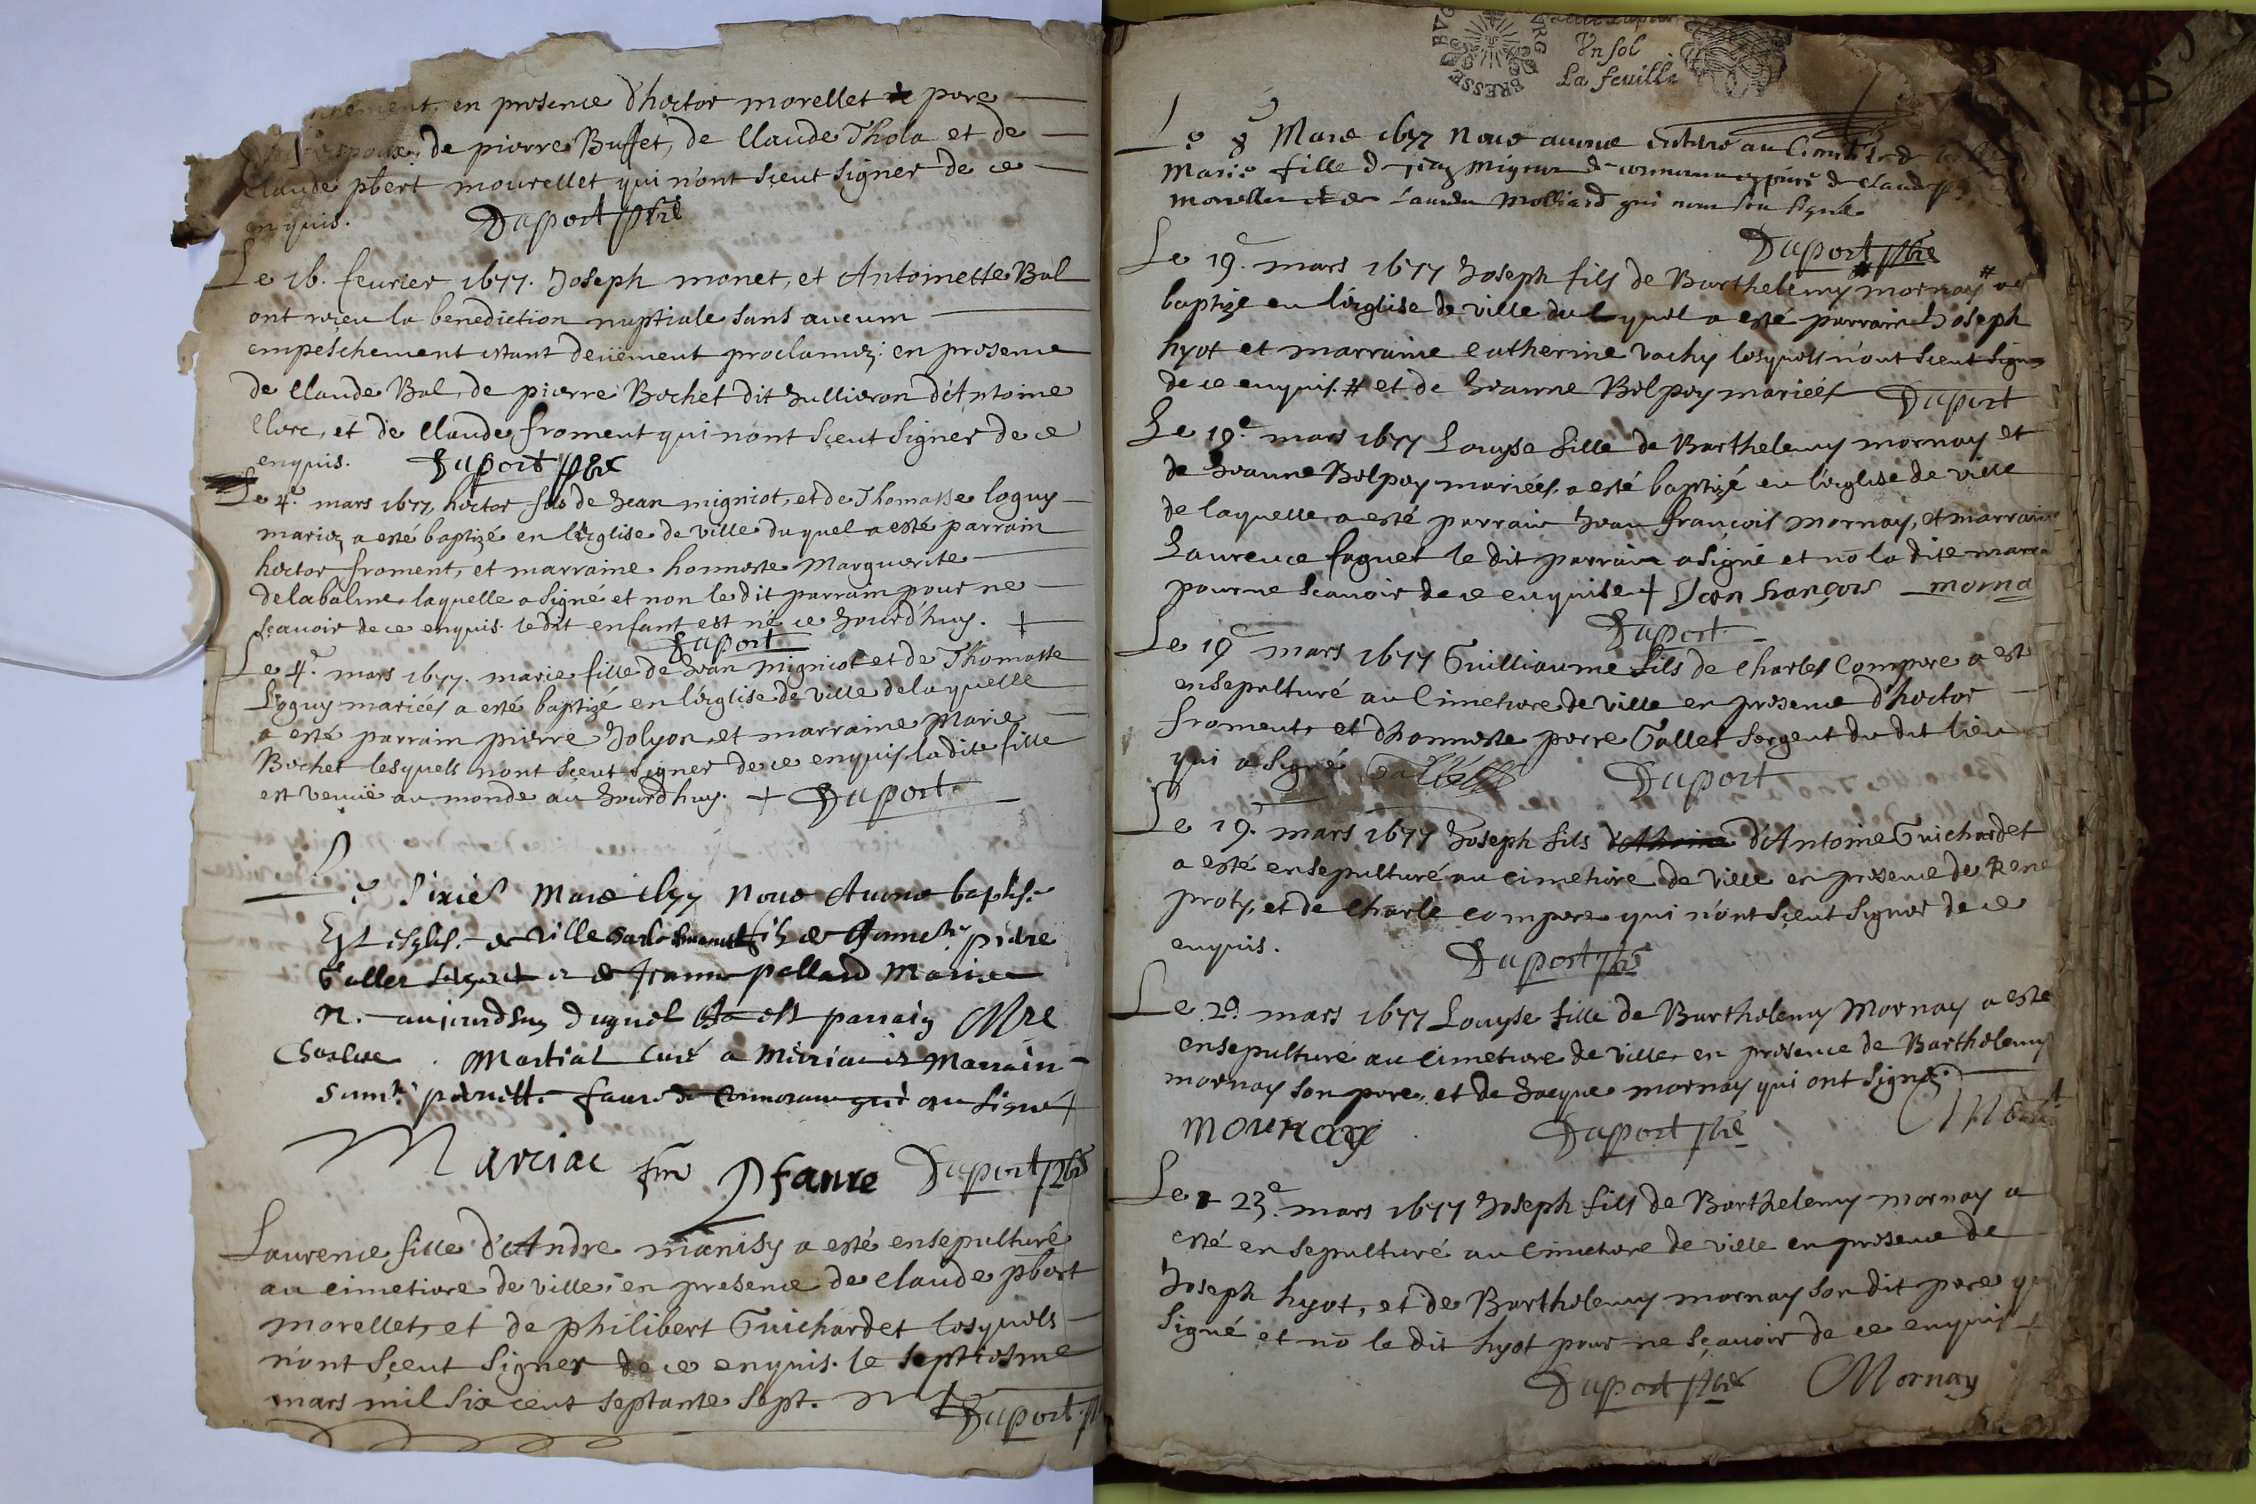 en presence d'hector morellet pere
de pierre Buffet, de Claude Thola et de
Claude pbert mourellet qui n'ont sçeut signer de ce
enquis. Duport pbre
Le 16. feurier 1677. Joseph monet, et Antoinette Bal
ont reçeu la benediction nuptiale sans aucun
empeschement estant deüement proclamez: en presence
de Claude Bal, de pierre Bochet dit Jullieron d'Antoine
Clerc, et de Claude froment qui n'ont sçeut signer de ce
enquis. Duport pbre
Le 4e. mars 1677, hector fils de Jean migniot, et de Thomasse loguy
mariez a esté baptizé en l'eglise de ville duquel a esté parrain
hector froment, et marraine honneste Marguerite
delabalme laquelle a signe et non le dit parrain pour ne
sçauoir de ce enquis. le dit enfant est né ce Jourd'huy. +
Duport
Le 4e. mars 1677. marie fille de Jean migniot et de Thomasse
Loguy mariées a esté baptizé en l'eglise de ville de laquelle
a esté parrain pierre Jolyon, et marraine Marie
Bochet lesquels n'ont sçeut signer de ce enquis. la dite fille
est venuë au monde au Jourd'huy. + Duport
Mars nous Auons baptisé
de ville fils de pierre
Gallet et de pollard
aujourdhuy duquel parrain Mre
Charles Martial Curé a
faure signé
Marciac Dfaure Duport pbre
Laurence fille d'Andre manisy a esté ensepulturé
au cimetiere de ville, en presence de Claude pbert
morellet, et de philibert Guichardet lesquels
n'ont sçeut signer de ce enquis. le septiesme
mars mil six cent septante sept.
Duport
BRESSE
Un sol
La feuille
Le 8e Mars 1677 nous auons
Marie fille de de Claude
Molliard qui nont sceu signé
Duport pbre
Le 19e. mars 1677 Joseph fils de Barthelemy mornay # a esté
baptizé en l'eglise de ville du quel a esté parrain Joseph
hyot et marraine Catherine vachy lesquels n'ont sçeut signer
de ce enquis. # et de Jeanne Belpoy mariées Duport
Le 19e mars 1677 Louyse fille de Barthelemy mornay et
de Jeanne Belpoy mariées, a esté baptizé en l'eglise de ville
de laquelle a esté parrain Jean françois mornay, et marraine
Laurence faguet le dit parrain a signé et no la dite
pour ne sçauoir de ce enquise + Jean françois morna
Duport
Le 19e mars 1677 Guilliaume fils de Charles Compere a esté
ensepulturé au Cimetiere de ville en presence d'hector
froment, et d'honneste pierre Gallet sergent du dit lieu
qui a signé Duport
Le 19. mars 1677 Joseph fils d'Antoine Guichardet
a esté ensepulturé au cimetiere de ville en presence de Rene
proty, et de Charle compere qui n'ont sçeut signer de ce
enquis.
Duport pbre
Le 20. mars 1677 Louyse fille de Barthelemy Mornay a esté
ensepulturé au cimetiere de ville en presence de Barthelemy
mornay son pere, et de Jacque mornay qui ont signé.
mournay Duport pbre
Le 23e. mars 1677 Joseph fils de Barthelemy mornay a
esté ensepulturé au cimetiere de ville en presence de
Joseph hyot, et de Barthelemy mornay son dit pere qui
signé et no le dit hyot pour ne sçauoir de ce enquis +
Duport pbre Mornay